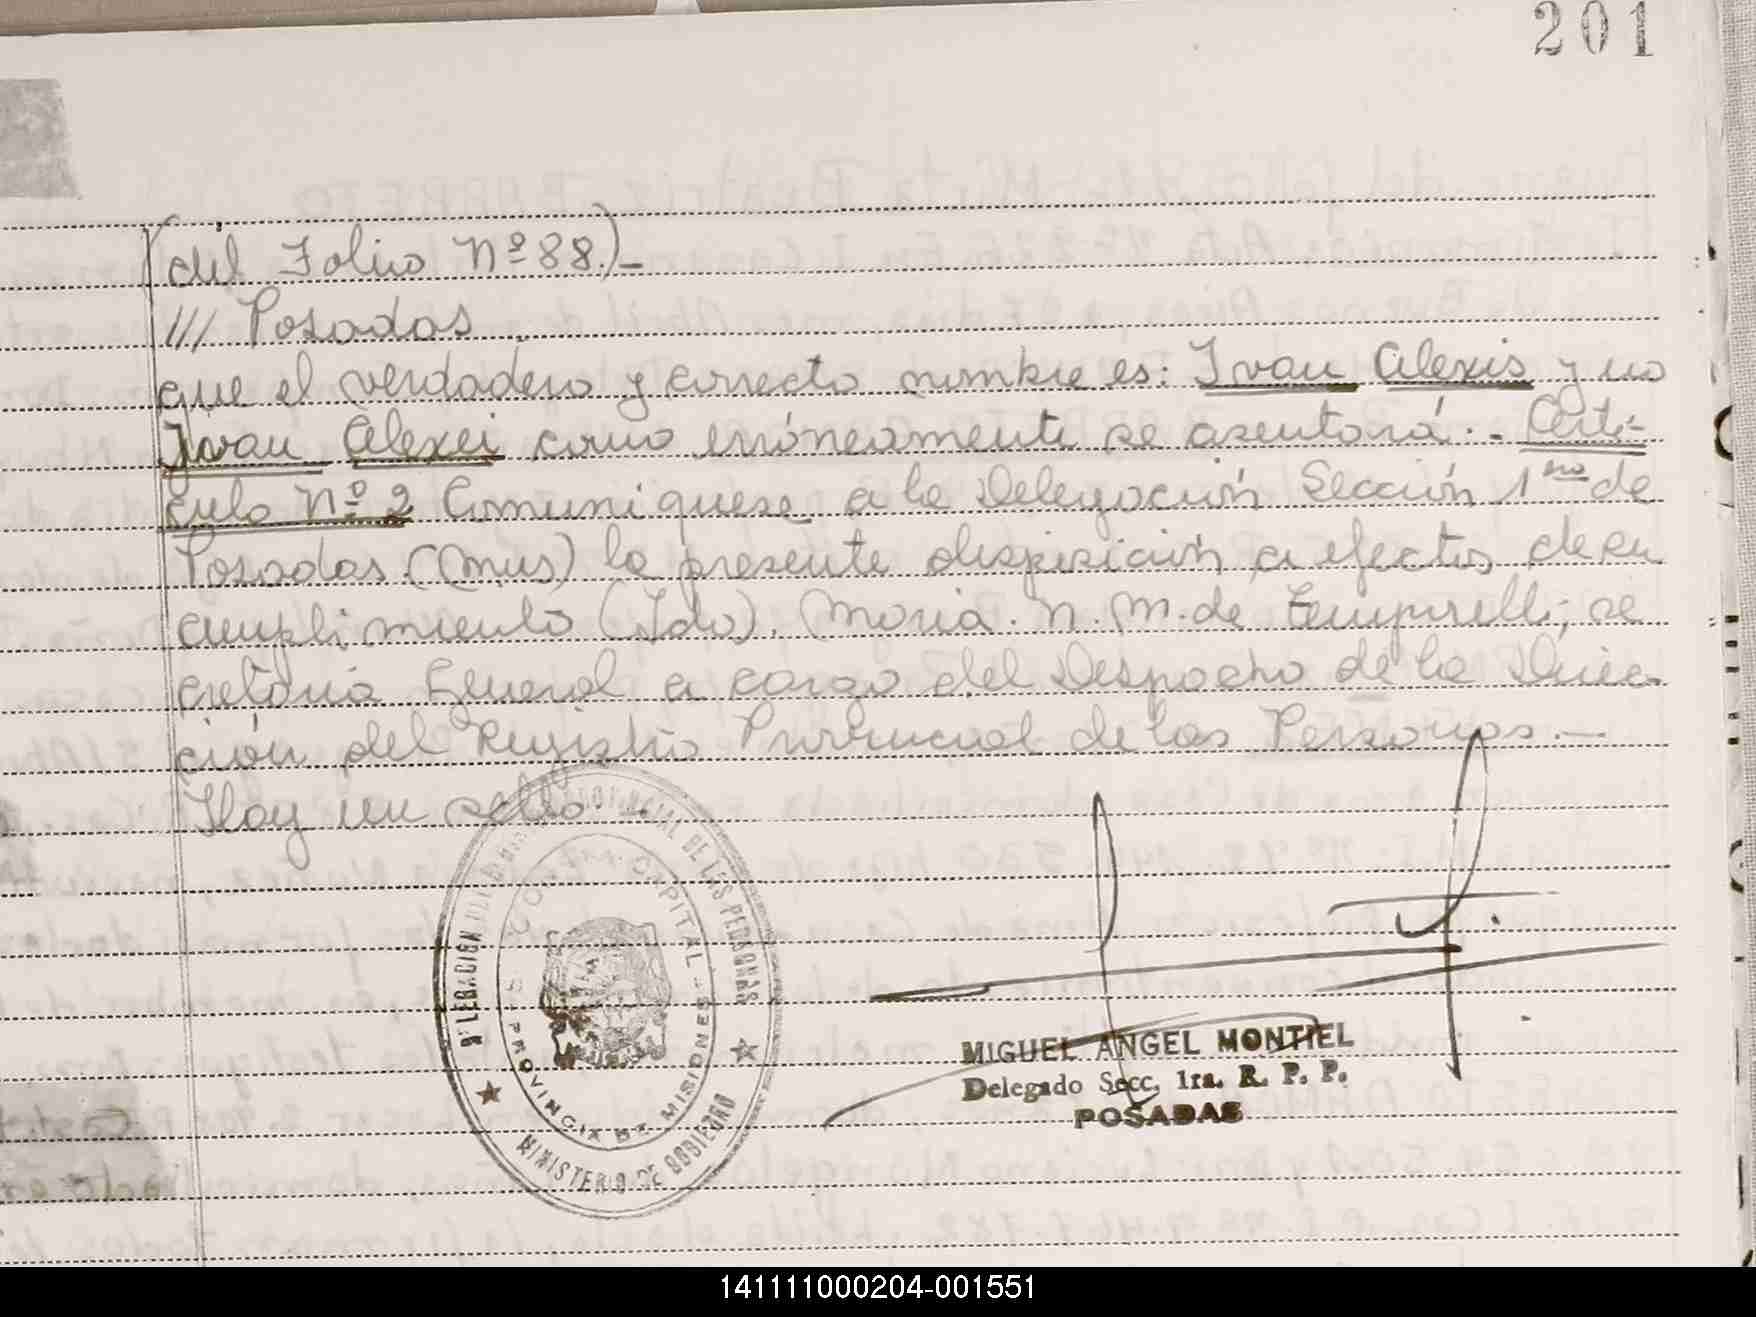 201
(del Folio Nº 88.)-
/// Posadas
que el verdadero y correcto nombre es: Ivan Alexis y no
Ivan Alexei como erróneamente se asentorá.- Artí-
culo Nº 2 Comuniquese a la Delegación Sección 1ra de
Posadas (Mns) la presente disposición a efectos de su
cumplimiento (Fdo). Maria. N. M. de Temporelli, se
cretaria General a cargo del Despacho de la Direc-
ción del Registro Provincial de las Personas.-
Hay un sello.-
DELEGACION DEL PROVINCIAL DE LAS PERSONAS
MINISTERIO DE GOBIERNO
CAPITAL
PROVINCIA DE MISIONES
MIGUEL ANGEL MONTIEL
Delegado Secc. 1ra. R. P. P.
POSADAS
141111000204-001551